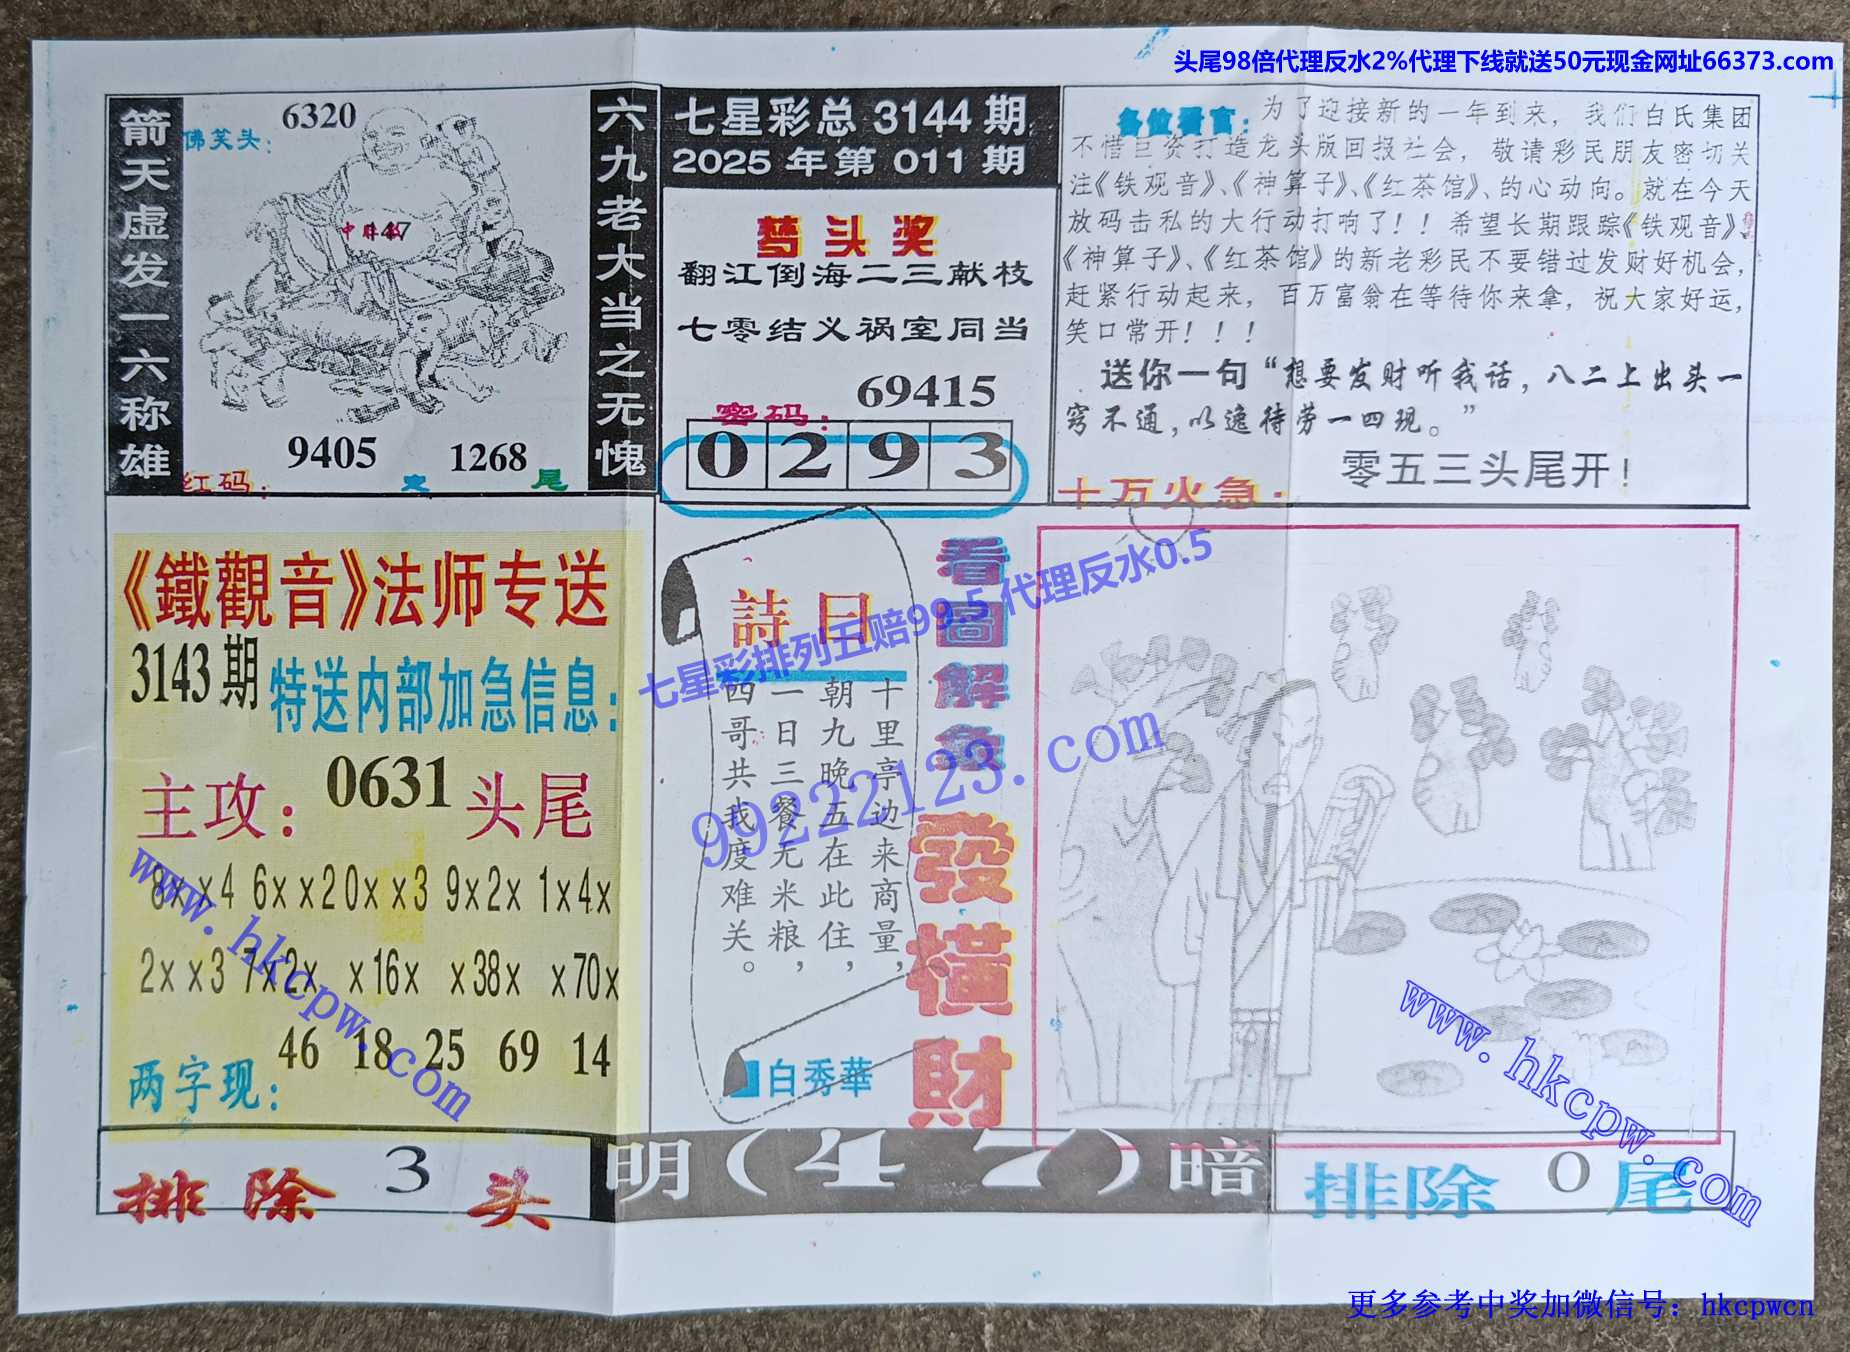 头尾98倍代理反水2%代理下线就送50元现金网址66373.com
箭天虚发一六称雄
佛笑头:
6320
中肚数
47
9405
1268
红码:
定
尾
六九老大当之无愧
七星彩总3144期
2025年第011期
梦头奖
翻江倒海二三献枝
七零结义祸室同当
69415
密码:
0 2 9 3
各位看官:为了迎接新的一年到来，我们白氏集团
不惜巨资打造龙头版回报社会，敬请彩民朋友密切关
注《铁观音》、《神算子》、《红茶馆》、的心动向。就在今天
放码击私的大行动打响了!! 希望长期跟踪《铁观音》、
《神算子》、《红茶馆》的新老彩民不要错过发财好机会，
赶紧行动起来，百万富翁在等待你来拿，祝大家好运，
笑口常开!!!
送你一句“想要发财听我话，八二上出头一
窍不通，以逸待劳一四现。”
零五三头尾开!
十万火急:
《鐵觀音》法师专送
3143期
特送内部加急信息:
主攻: 0631 头尾
8xx4 6xx2 0xx3 9x2x 1x4x
2xx3 7x2x x16x x38x x70x
两字现: 46 18 25 69 14
詩目
十里亭边来商量，
朝九晚五在此住，
一日三餐无米粮，
四哥共我度难关。
白秀華
看圖解象
發橫財
七星彩排列五赔99.5 代理反水0.5
99222123.com
www.hkcpw.com
www.hkcpw.com
排除 3 头
明(47)暗
排除 0 尾
更多参考中奖加微信号: hkcpwcn